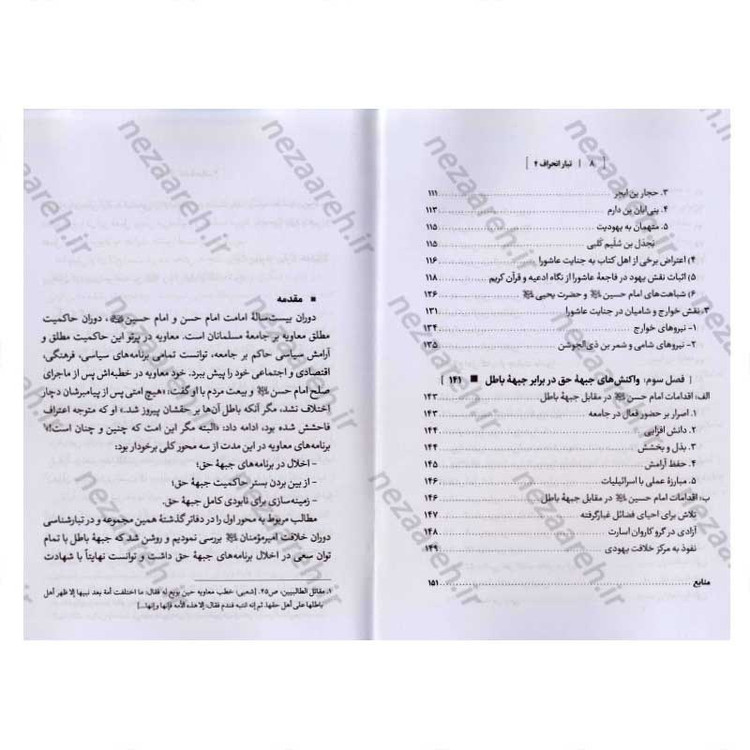 [ ۸ | تبار انحراف ۴ ]
۳. حجار بن ابجر ۱۱۱
۴. بنی‌ابان بن دارم ۱۱۳
۵. متهمان به یهودیت ۱۱۵
بَحْدَل بن سُلَیم کلبی ۱۱۵
۴) اعتراض برخی از اهل کتاب به جنایت عاشورا ۱۱۶
۵) اثبات نقش یهود در فاجعهٔ عاشورا از نگاه ادعیه و قرآن کریم ۱۱۸
۶) شباهت‌های امام حسین و حضرت یحیی ۱۲۶
۳. نقش خوارج و شامیان در جنایت عاشورا ۱۳۱
۱- نیروهای خوارج ۱۳۴
۲- نیروهای شامی و شمر بن ذی‌الجوشن ۱۳۵
[ فصل سوم: واکنش‌های جبههٔ حق در برابر جبههٔ باطل ■ ۱۴۱ ]
الف: اقدامات امام حسن در مقابل جبههٔ باطل ۱۴۳
۱. اصرار بر حضور فعال در جامعه ۱۴۳
۲. دانش افزایی ۱۴۴
۳. بذل و بخشش ۱۴۴
۴. حفظ آرامش ۱۴۵
۵. مبارزهٔ عملی با اسرائیلیات ۱۴۶
ب: اقدامات امام حسین در مقابل جبههٔ باطل ۱۴۶
تلاش برای احیای فضائل غبارگرفته ۱۴۷
آزادی در گرو کاروان اسارت ۱۴۸
نفوذ به مرکز خلافت یهودی ۱۴۹
منابع ۱۵۱
■ مقدمه
دوران بیست‌سالهٔ امامت امام حسن و امام حسین، دوران حاکمیت
مطلق معاویه بر جامعهٔ مسلمانان است. معاویه در پرتو این حاکمیت مطلق و
آرامش سیاسی حاکم بر جامعه، توانست تمامی برنامه‌های سیاسی، فرهنگی،
اقتصادی و اجتماعی خود را پیش ببرد. خود معاویه در خطبه‌اش پس از ماجرای
صلح امام حسن و بیعت مردم با او گفت: «هیچ امتی پس از پیامبرشان دچار
اختلاف نشد، مگر آنکه باطل آن‌ها بر حقشان پیروز شد.» او که متوجه اعتراف
فاحشش شده بود، ادامه داد: «البته مگر این امت که چنین و چنان است!»¹
برنامه‌های معاویه در این مدت از سه محور کلی برخوردار بود:
- اخلال در برنامه‌های جبههٔ حق؛
- از بین بردن بستر حاکمیت جبههٔ حق؛
- زمینه‌سازی برای نابودی کامل جبههٔ حق.
مطالب مربوط به محور اول را در دفاتر گذشتهٔ همین مجموعه و در تبارشناسی
دوران خلافت امیرمؤمنان بررسی نمودیم و روشن شد که جبههٔ باطل با تمام
توان سعی در اخلال برنامه‌های جبههٔ حق داشت و توانست نهایتاً با شهادت
۱. مقاتل الطالبیین، ص۴۵. [شعبی: خطب معاویه حین بویع له فقال: ما اختلفت أمة بعد نبیها إلا ظهر أهل
باطلها علی أهل حقها. ثم إنه انتبه فندم فقال: إلا هذه الأمه فإنها وإنها...]
nezaareh.ir